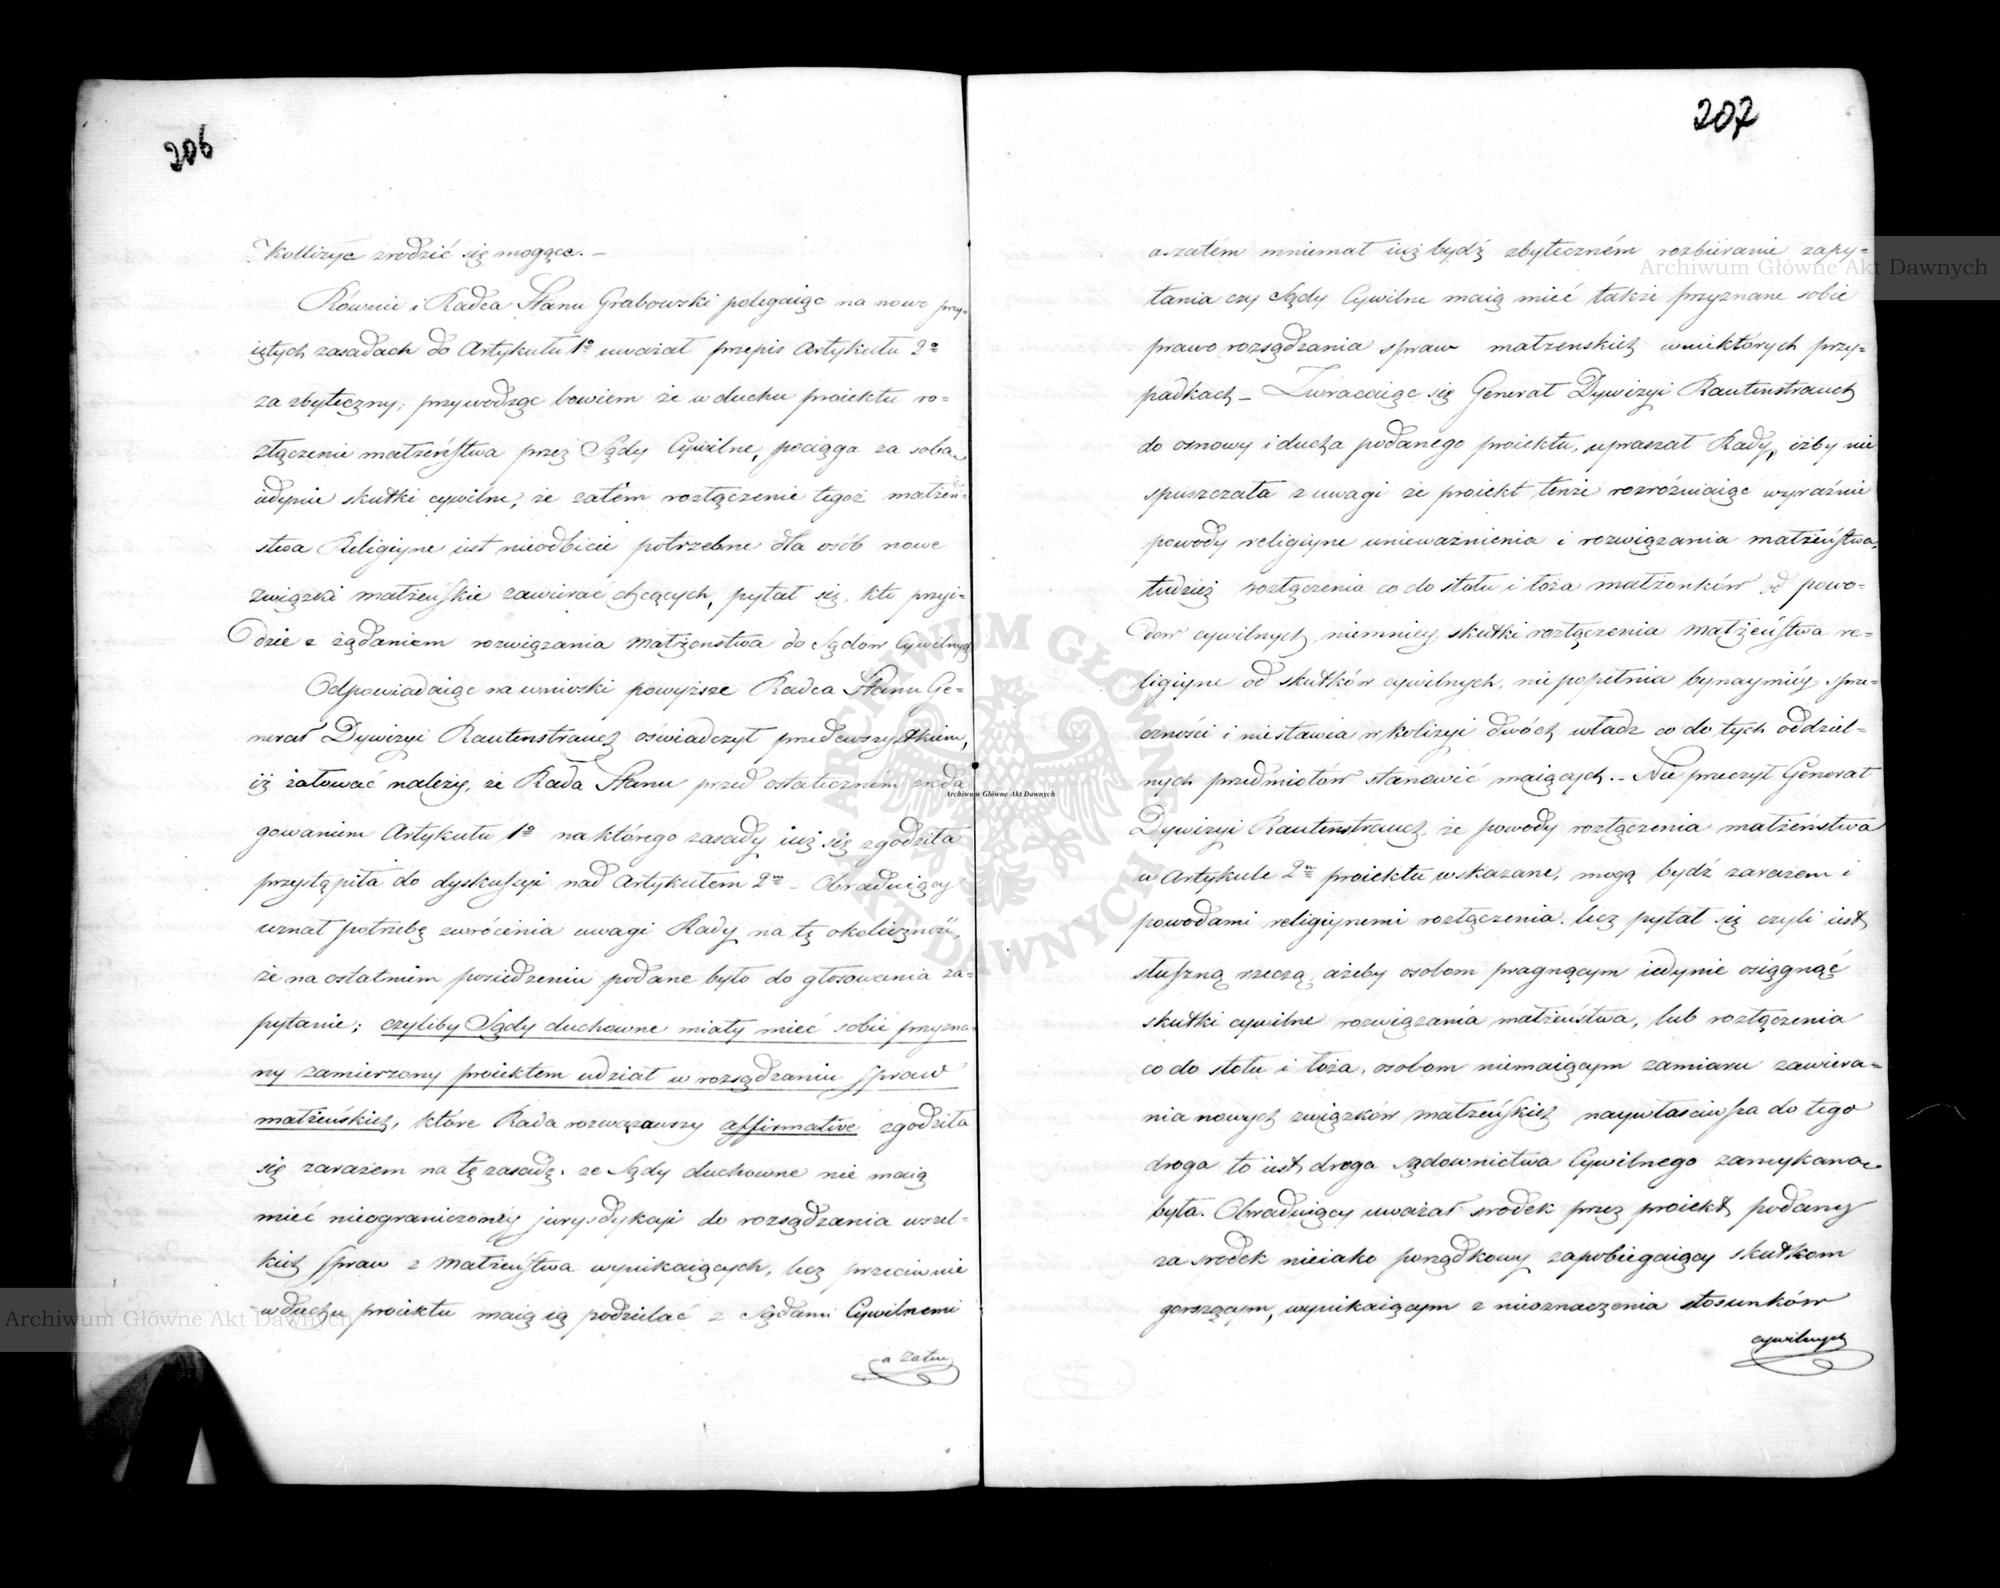 206
Kollizye zrodzić się mogące. —
Równie i Radca Stanu Grabowski polegaiąc na nowo przy-
iętych zasadach do Artykułu 1o uważał przepis Artykułu 2o
za zbyteczny; przywodząc bowiem że w duchu proiektu ro-
złączenie małżeństwa przez Sądy Cywilne, pociąga za sobą
iedynie skutki cywilne, że zatém rozłączenie tegoż małżeń-
stwa Religiyne iest nieodbicie potrzebne dla osób nowe
związki małżeńskie zawierać chcących, pytał się, kto przyi-
dzie z żądaniem rozwiązania małżenstwa do Sądow Cywilnych
Odpowiadaiąc na wnioski powyższe Radca Stanu Ge-
nerał Dywizyi Rautenstrauch oświadczył przedewszystkiem,
iż żałować należy, że Rada Stanu przed ostateczném zreda
gowaniem Artykułu 1o na którego zasady iuż się zgodziła
przystąpiła do dyskussyi nad Artykułem 2m — Obraduiący
uznał potrzebę zwrócenia uwagi Rady na tę okoliczność,
że na ostatniem posiedzeniu podane było do głosowania za-
pytanie; czyliby Sądy duchowne miały mieć sobie przyzna-
ny zamierzony proiektem udział w rozsądzaniu spraw
małżeńskich, które Rada rozważawszy affirmative zgodziła
się zarazem na tę zasadę. że Sądy duchowne nie maią
mieć nieograniczoney jurysdykcyi do rozsądzania wszel-
kich spraw z małżeństwa wynikaiących, lecz przeciwnie
w duchu proiektu maią ią podzielać z Sądami Cywilnemi
a zatem
207
a zatém mniemał iuż bydź zbyteczném rozbieranie zapy-
tania czy Sądy Cywilne maią mieć także przyznane sobie
prawo rozsądzania spraw małzenskich w niektórych przy-
padkach — Zwracaiąc się Generał Dywizyi Rautenstrauch
do osnowy i ducha podanego proiektu, upraszał Rady, iżby nie
spuszczała z uwagi że proiekt tenże rozróżniaiąc wyraźnie
powody religiyne unieważnienia i rozwiązania małżeństwa,
tudzież rozłączenia co do stołu i łoża małżonków od powo-
dow cywilnych, niemniey, skutki rozłączenia małżeństwa re-
ligiyne od skutków cywilnych, nie popełnia bynaymniéy sprze-
czności i niestawia w kolizyi dwóch władz co do tych oddziel-
nych przedmiotów stanowić maiących. — Nie przeczył Generał
Dywizyi Rautenstrauch że powody rozłączenia małżeństwa
w Artykule 2m proiektu wskazane, mogą bydź zarazem i
powodami religiynemi rozłączenia. lecz pytał się czyli iest
słuszną rzeczą, ażeby osobom pragnącym iedynie osiągnąć
skutki cywilne rozwiązania małżeństwa, lub rozłączenia
co do stołu i łoża, osobom niemaiącym zamiaru zawiera-
nia nowych związków małżeńskich naywłaściwsza do tego
droga to iest droga sądownictwa Cywilnego zamykana
była. Obraduiący uważał srodek przez proiekt podany
za srodek nieiako porządkowy zapobiegaiący skutkom
gorszącym, wynikaiącym z nieoznaczenia stosunków
cywilnych
Archiwum Główne Akt Dawnych
Archiwum Główne Akt Dawnych
Archiwum Główne Akt Dawnych
ARCHIWUM GŁÓWNE AKT DAWNYCH